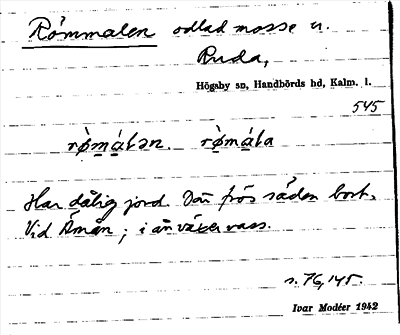 Römmalen odlad mosse u.
Ruda,
Högsby sn, Handbörds hd, Kalm. l.
545
rø̀máɫən. rø̀máɫa
Har dålig jord. Där frös säden bort.
Vid Åmån; i ån växer vass.
s. 76, 145.
Ivar Modéer 1942